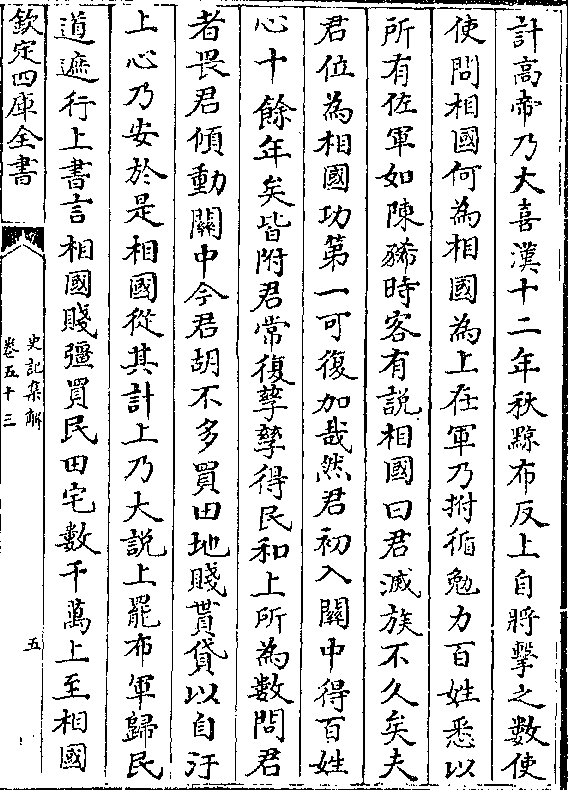 計高帝乃大喜漢十二年秋黥布反上自將擊之數使
使問相國何為相國為上在軍乃拊循勉力百姓悉以
所有佐軍如陳豨時客有説相國曰君滅族不久矣夫
君位為相國功第一可復加哉然君初入關中得百姓
心十餘年矣皆附君常復孳孳得民和上所為數問君
者畏君傾動關中今君胡不多買田地賤貰貸以自汙
上心乃安於是相國從其計上乃大説上罷布軍歸民
道遮行上書言相國賤彊買民田宅數千萬上至相國
欽定四庫全書
史記集解
卷五十三
五